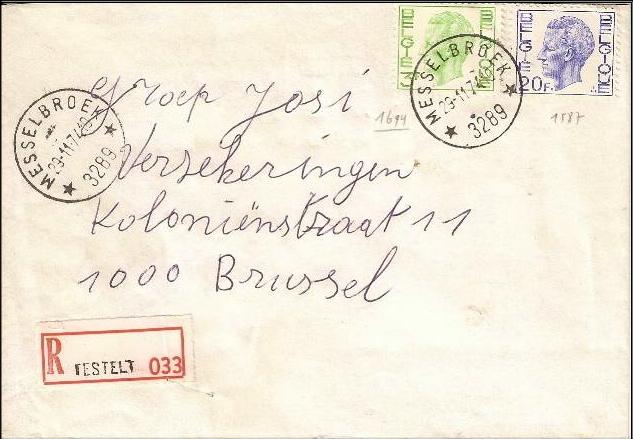 BELGIE
BELGIQUE
BELGIE
BELGIQUE
20F.
MESSELBROEK
29-11-74
3289
MESSELBROEK
29-11-74
3289
1694
1587
Groep Josi
Verzekeringen
Koloniënstraat 11
1000 Brussel
R TESTELT 033